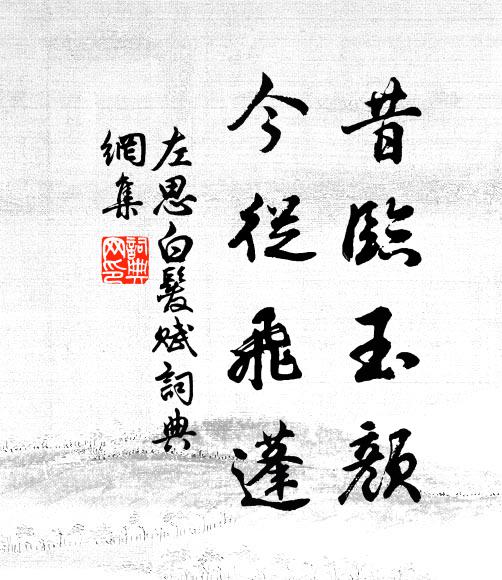 昔臨玉顏
今從飛蓬
左思白髮賦詞典
網集
詞典
网印